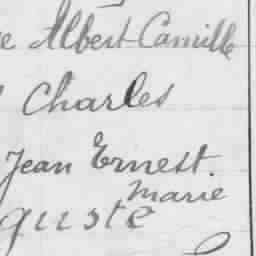 e Albert Camille
Charles
Jean Ernest.
Marie
guste